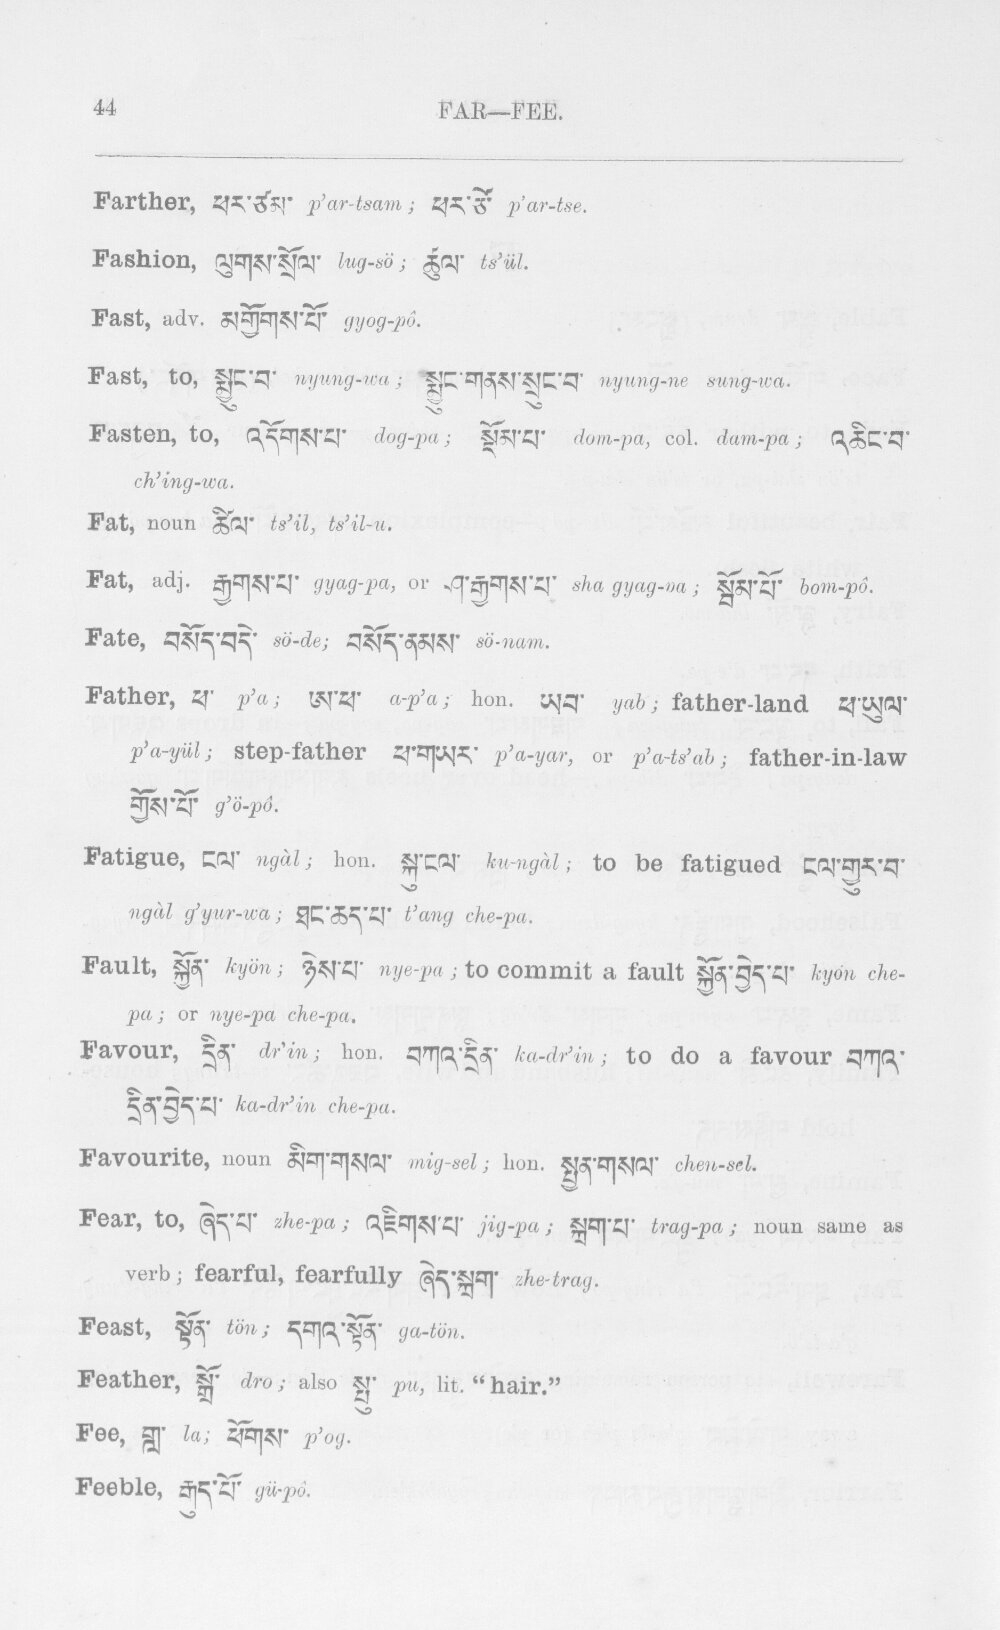 44
FAR—FEE.
Farther, ཕར་ཙམ་ p'ar-tsam; ཕར་ཙེ་ p'ar-tse.
Fashion, ལུགས་སྲོལ་ lug-sö; ཚུལ་ ts'ül.
Fast, adv. མགྱོགས་པོ་ gyog-pô.
Fast, to, སྨྱུང་བ་ nyung-wa; སྨྱུང་གནས་སྲུང་བ་ nyung-ne sung-wa.
Fasten, to, འདོགས་པ་ dog-pa; སྡོམ་པ་ dom-pa, col. dam-pa; འཆིང་བ་
ch'ing-wa.
Fat, noun ཚིལ་ ts'il, ts'il-u.
Fat, adj. རྒྱགས་པ་ gyag-pa, or ཤ་རྒྱགས་པ་ sha gyag-pa; སྦོམ་པོ་ bom-pô.
Fate, བསོད་བདེ་ sö-de; བསོད་ནམས་ sö-nam.
Father, ཕ་ p'a; ཨ་ཕ་ a-p'a; hon. ཡབ་ yab; father-land ཕ་ཡུལ་
p'a-yül; step-father ཕ་གཡར་ p'a-yar, or p'a-ts'ab; father-in-law
གྱོས་པོ་ g'ö-pô.
Fatigue, ངལ་ ngàl; hon. སྐུ་ངལ་ ku-ngàl; to be fatigued ངལ་གྱུར་བ་
ngàl g'yur-wa; ཐང་ཆད་པ་ t'ang che-pa.
Fault, སྐྱོན་ kyön; ཉེས་པ་ nye-pa; to commit a fault སྐྱོན་བྱེད་པ་ kyön che-
pa; or nye-pa che-pa.
Favour, དྲིན་ dr'in; hon. བཀའ་དྲིན་ ka-dr'in; to do a favour བཀའ་
དྲིན་བྱེད་པ་ ka-dr'in che-pa.
Favourite, noun མིག་གསལ་ mig-sel; hon. སྤྱན་གསལ་ chen-sel.
Fear, to, ཞེད་པ་ zhe-pa; འཇིགས་པ་ jig-pa; སྐྲག་པ་ trag-pa; noun same as
verb; fearful, fearfully ཞེད་སྐྲག་ zhe-trag.
Feast, སྟོན་ tön; དགའ་སྟོན་ ga-tön.
Feather, སྒྲོ་ dro; also སྤུ་ pu, lit. “hair.”
Fee, གླ་ la; ཕོགས་ p'og.
Feeble, རྒུད་པོ་ gü-pô.